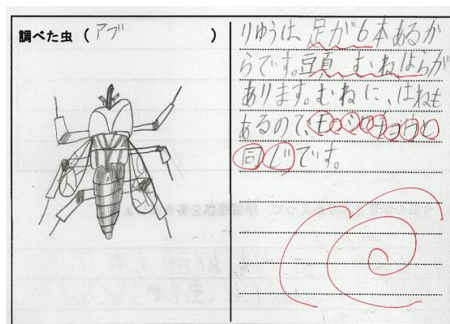 調べた虫（アブ　　　）
りゆうは、足が6本あるか
らです。頭、むねはらが
あります。むねに、はねも
あるので、モンシロチョウと
同じです。